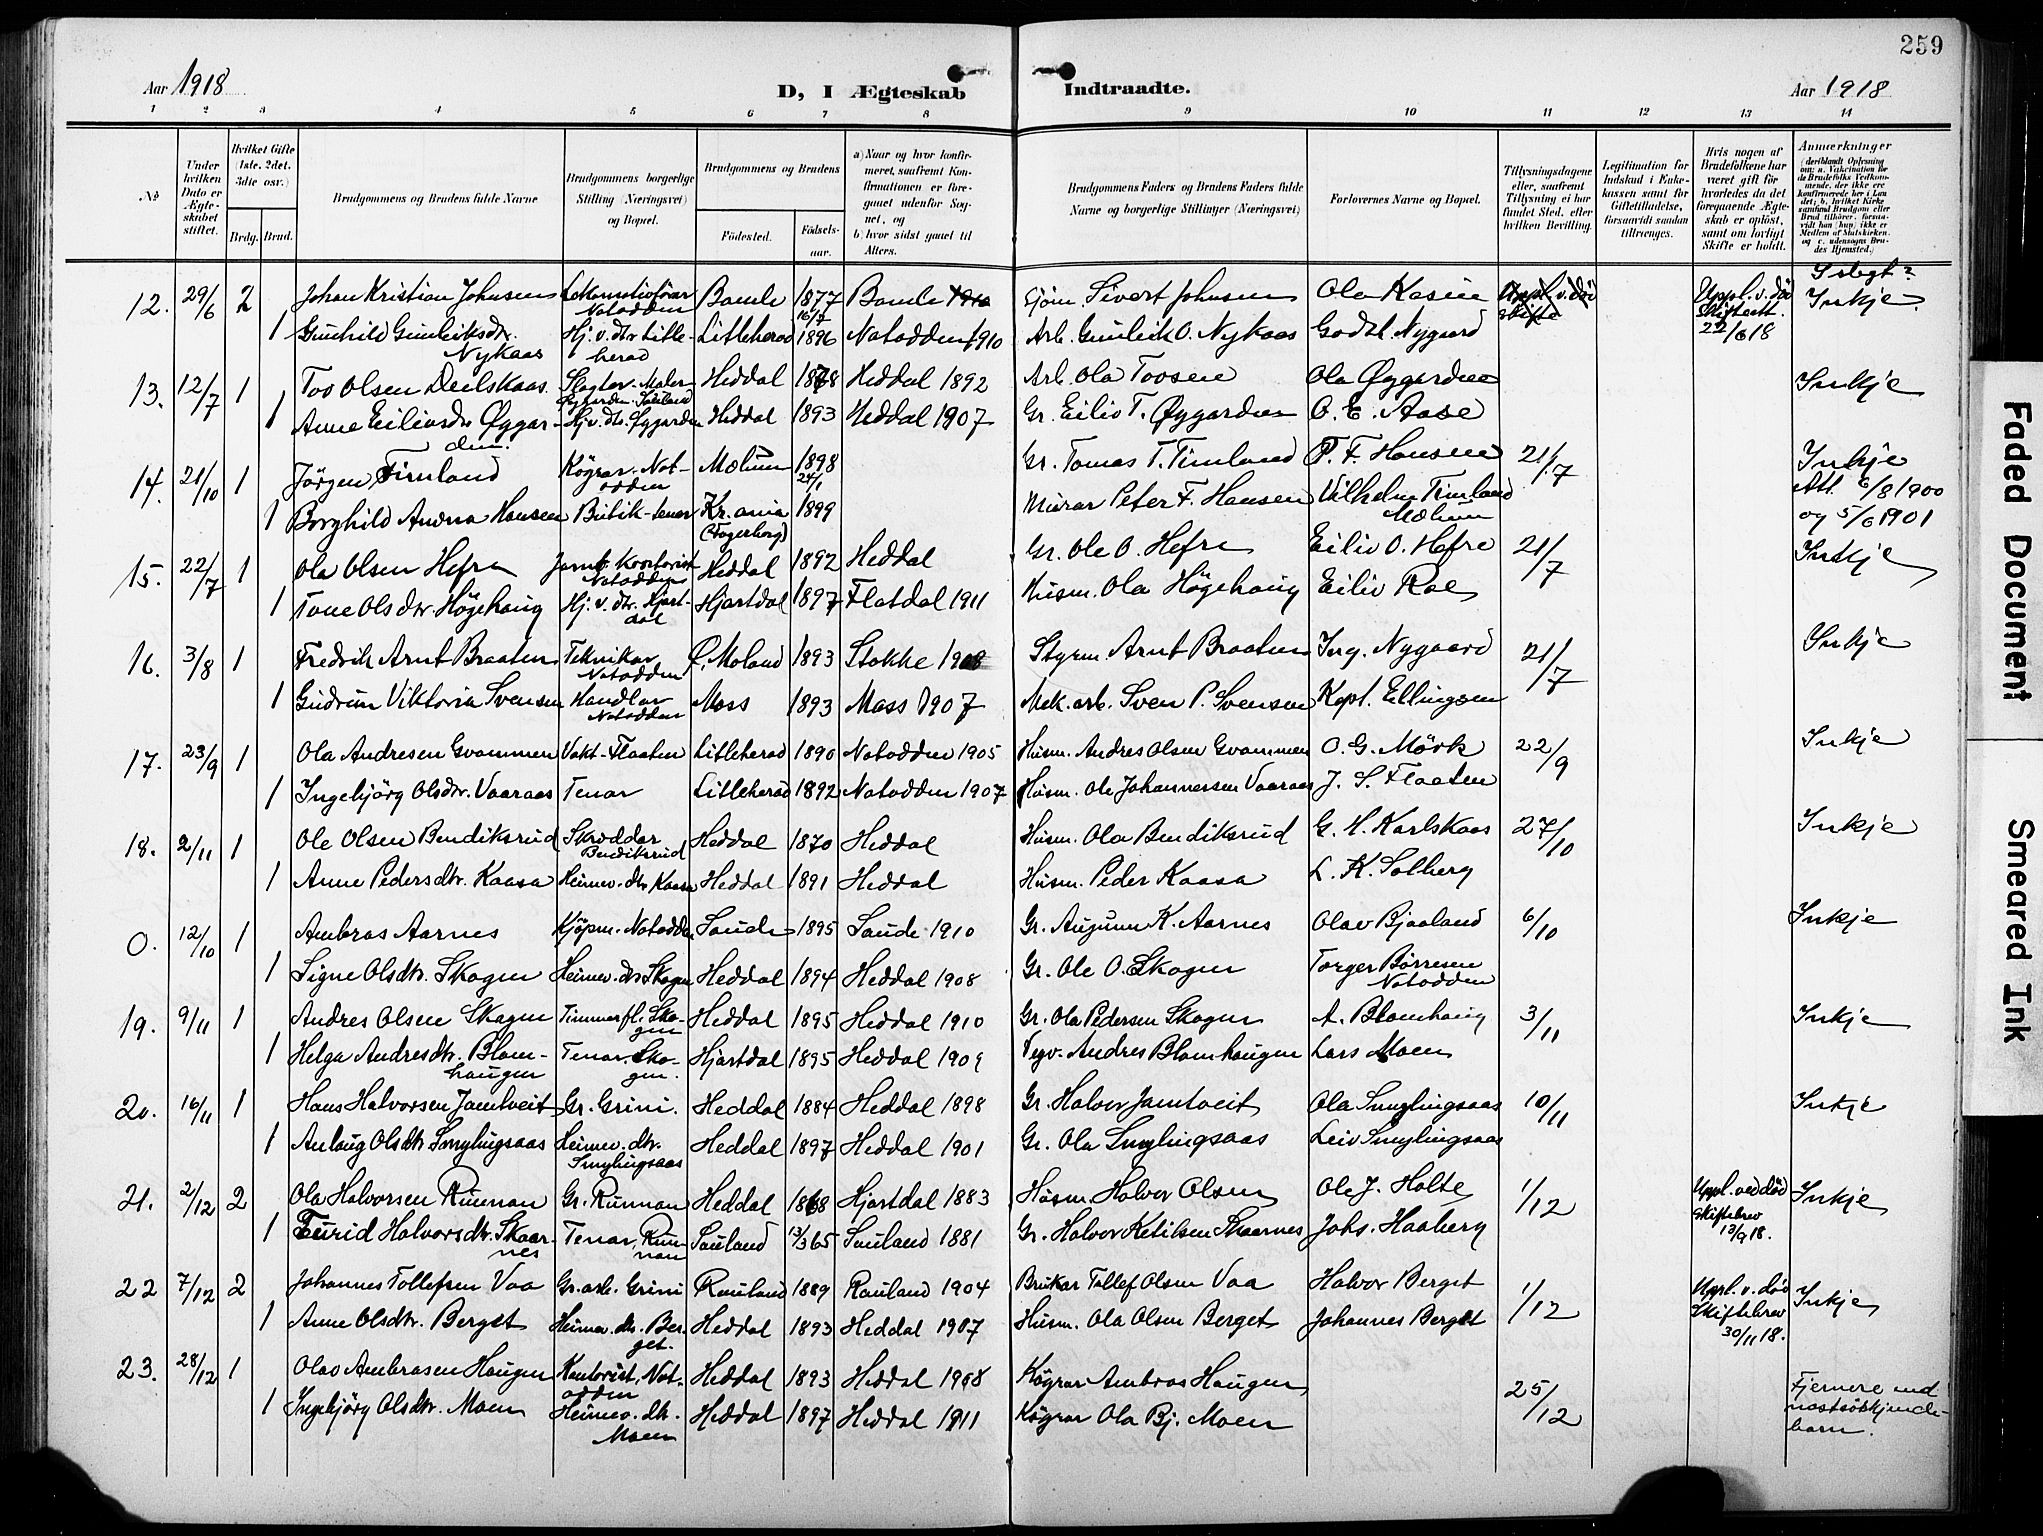 259
Aar 1918
D, I Ægteskab
Indtraadte.
Aar 1918
1 2 3 4 5 6 7 8 9 10 11 12 13 14
No
Under hvilken Dato er Ægteskabet stiftet.
Hvilket Gifte (1ste, 2det, 3die osv.)
Brdg. Brud.
Brudgommens og Brudens fulde Navne
Brudgommens borgerlige Stilling (Næringsvei) og Bopæl.
Brudgommens og Brudens
Fødested.
Fødselsaar.
a) Naar og hvor konfirmeret, saafremt Konfirmationen er foregaaet udenfor Sognet, og
b) hvor sidst gaaet til Alters.
Brudgommens Faders og Brudens Faders fulde Navne og borgerlige Stillinger (Næringsvei)
Forlovernes Navne og Bopæl.
Tillysningsdagene eller, saafremt Tillysning ei har fundet Sted, efter hvilken Bevilling.
Legitimation for Indskud i Enkekassen samt for Giftetilladelse, forsaavidt saadan tiltrænges.
Hvis nogen af Brudefolkene har været gift før hvorledes da det foregaaende Ægteskab er opløst, samt om lovligt Skifte er holdt.
Anmærkninger
12. 29/6 2 Johan Kristian Johnsen Lokomotivførar Notodden Bamle 1877 Bamle Gjöm. Sivert Johnsen Ola Kasin Uppl. v. död Skifteatt. 22/6 18 I slegt? Inkje
1 Gunhild Gunleiksdr. Nykaas Hj. v. dtr Litleherad Litleherad 16/7 1896 Notodden 1910 Arb. Gunleik O. Nykaas Godsk. Nygaard
13. 12/7 1 Tov Olsen Deilskaas Slagtar-Malar Øygarden-Sauland Heddal 1878 Heddal 1892 Arb. Ola Tovsen Ola Øygarden Inkje
1 Anne Eilivsdr. Øygarden. Hj. v. dtr. Øygarden Heddal 1893 Heddal 1907 Gr. Eiliv T. Øygarden O. E. Aase
14. 21/10 1 Jörgen Timland Kögrar-Notodden Mælum 1898 24/1 Gr. Tomas T. Timland P. F. Hansen 21/7 Inkje
1 Borghild Andrea Hansen Butik-tenar Kr.ania (Fagerborg) 1899 Murar Peter F. Hansen Vilhelm Timland Mælum Att. 6/8 1900 og 5/6 1901
15. 22/7 1 Ola Olsen Hefre Jarnb. kontorist Notodden Heddal 1892 Heddal Gr. Ole O. Hefre Eiliv O. Hefre 21/7 Inkje
1 Tone Olsdtr. Högehaug Hj. v. dtr. Hjartdal Hjartdal 1897 Flatdal 1911 Husm. Ola Högehaug Eiliv Roe
16. 3/8 1 Fredrik Arnt Braaten Teknikar Notodden Ö. Moland 1893 Stokke 1908 Styrm. Arnt Braaten Ing. Nygaard 21/7 Inkje
1 Gudrun Viktoria Svensen Handlar Notodden Moss 1893 Moss 1907 Mek. arb. Sven P. Svensen Kapt. Ellingsen
17. 23/9 1 Ola Andresen Gvammen Vakt-Flaaten Litleherad 1890 Notodden 1905 Husm. Andres Olsen Gvammen O. G. Mörk 22/9 Inkje
1 Ingebjörg Olsdtr. Vaaraas Tenar Litleherad 1892 Notodden 1907 Husm. Ole Johannersen Vaaraas J. S. Flaaten
18. 2/11 1 Ole Olsen Bendiksrud Skræddar Bendiksrud Heddal 1870 Heddal Husm. Ola Bendiksrud G. H. Karlskaas 27/10 Inkje
1 Anne Pedersdtr. Kaasa Heimev. dtr Kaasa Heddal 1891 Heddal Husm. Peder Kaasa L. K. Solberg
0. 12/10 1 Ambros Aarnes Kjöpm. Notodden Saude 1895 Saude 1910 Gr. Augunn K. Aarnes Olav Bjaaland 6/10 Inkje
1 Signe Olsdtr. Skogen Heimev. dtr Skogen Heddal 1894 Heddal 1908 Gr. Ole O. Skogen Torger Börresen Notodden
19. 9/11 1 Andres Olsen Skogen Timmerfl. Skogen Heddal 1895 Heddal 1910 Gr. Ola Pedersen Skogen A. Blomhaug 3/11 Inkje
1 Helga Andresdtr. Blomhaugen Tenar. Skogen. Hjartdal 1895 Heddal 1909 Vegv. Andres Blomhaugen Lars Moen
20. 16/11 1 Hans Halvorsen Jamtveit Gr. Grini. Heddal 1884 Heddal 1898 Gr. Halvor Jamtveit Ola Smylingsaas 10/11 Inkje
1 Anlaug Olsdtr Smylingsaas Heimev. dtr. Smylingsaas Heddal 1897 Heddal 1901 Gr. Ola Smylingsaas Leiv Smylingsaas
21. 2/12 2 Ola Halvorsen Runnan Gr. Runnan Heddal 1868 Hjartdal 1883 Husm. Halvor Olsen Ole J. Holte 1/12 Uppl. ved död Skiftebrev 13/9 18. Inkje
1 Turid Halvorsdtr. Skaarnes Tenar, Runnan Sauland 13/3 65 Sauland 1881 Gr. Halvor Ketilsen Skaarnes Johs. Haaberg
22 7/12 2 Johannes Tollefsen Vaa Gr. arb. Grini Rauland 1889 Rauland 1904 Brukar Tollef Olsen Vaa Halvor Berget 1/12 Uppl. v. död Skiftebrev 30/11 18. Inkje
1 Anne Olsdtr. Berget Heimev. dtr. Berget. Heddal 1893 Heddal 1907 Husm. Ola Olsen Berget Johannes Berget
23. 28/12 1 Olav Ambrosen Haugen Kontorist, Notodden Heddal 1893 Heddal 1908 Kögrar Ambros Haugen 25/12 Fjernere end næstsöskjendebarn.
1 Ingebjörg Olsdtr. Moen Heimev. dtr. Moen Heddal 1897 Heddal 1911 Kögrar Ola Bj. Moen
Faded Document
Smeared Ink